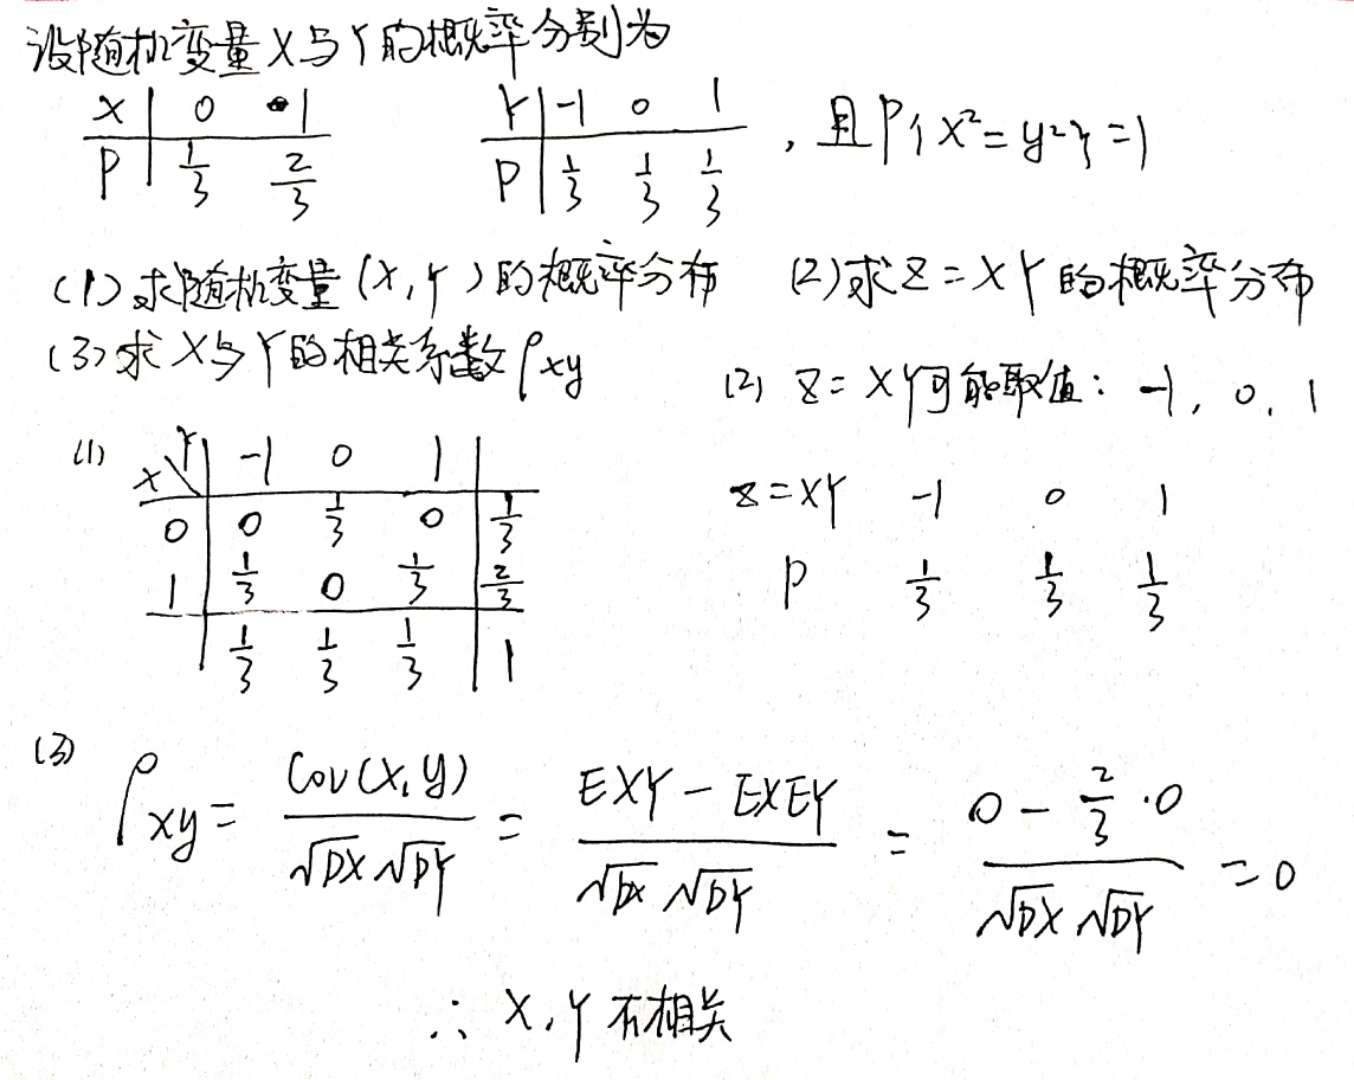 设随机变量X与Y的概率分别为
X 0 1
P 1/3 2/3
Y -1 0 1
P 1/3 1/3 1/3
, 且P{X²=y²}=1
(1)求随机变量(X,Y)的概率分布 (2)求Z=XY的概率分布
(3)求X与Y的相关系数ρxy
(1)
X\Y -1 0 1
0 0 1/3 0 1/3
1 1/3 0 1/3 2/3
1/3 1/3 1/3 1
(2) Z=XY可能取值: -1, 0, 1
Z=XY -1 0 1
P 1/3 1/3 1/3
(3) ρxy = Cov(X,y)/(√DX √DY) = (EXY - EXEY)/(√DX √DY) = (0 - 2/3·0)/(√DX √DY) = 0
∴ X,Y不相关